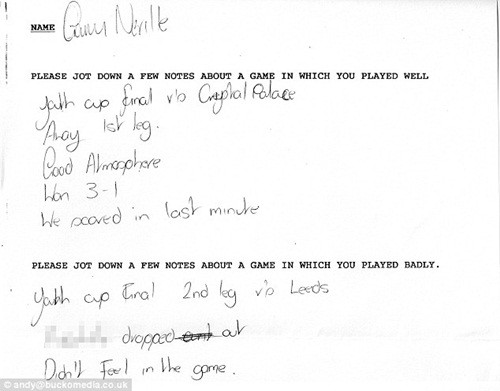 NAME Gary Neville
PLEASE JOT DOWN A FEW NOTES ABOUT A GAME IN WHICH YOU PLAYED WELL
Youth cup final v's Crystal Palace
Away 1st leg.
Good Atmosphere
Won 3-1
We scored in last minute
PLEASE JOT DOWN A FEW NOTES ABOUT A GAME IN WHICH YOU PLAYED BADLY.
Youth cup Final 2nd leg v's Leeds
dropped out
Didn't Feel in the game.
© andy@buckomedia.co.uk